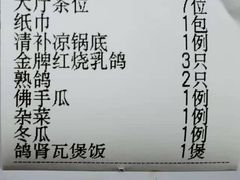 大厅茶位 7位
纸巾 1包
清补凉锅底 1例
金牌红烧乳鸽 3只
熟鸽 2只
佛手瓜 1例
杂菜 1例
冬瓜 1例
鸽肾瓦煲饭 1煲